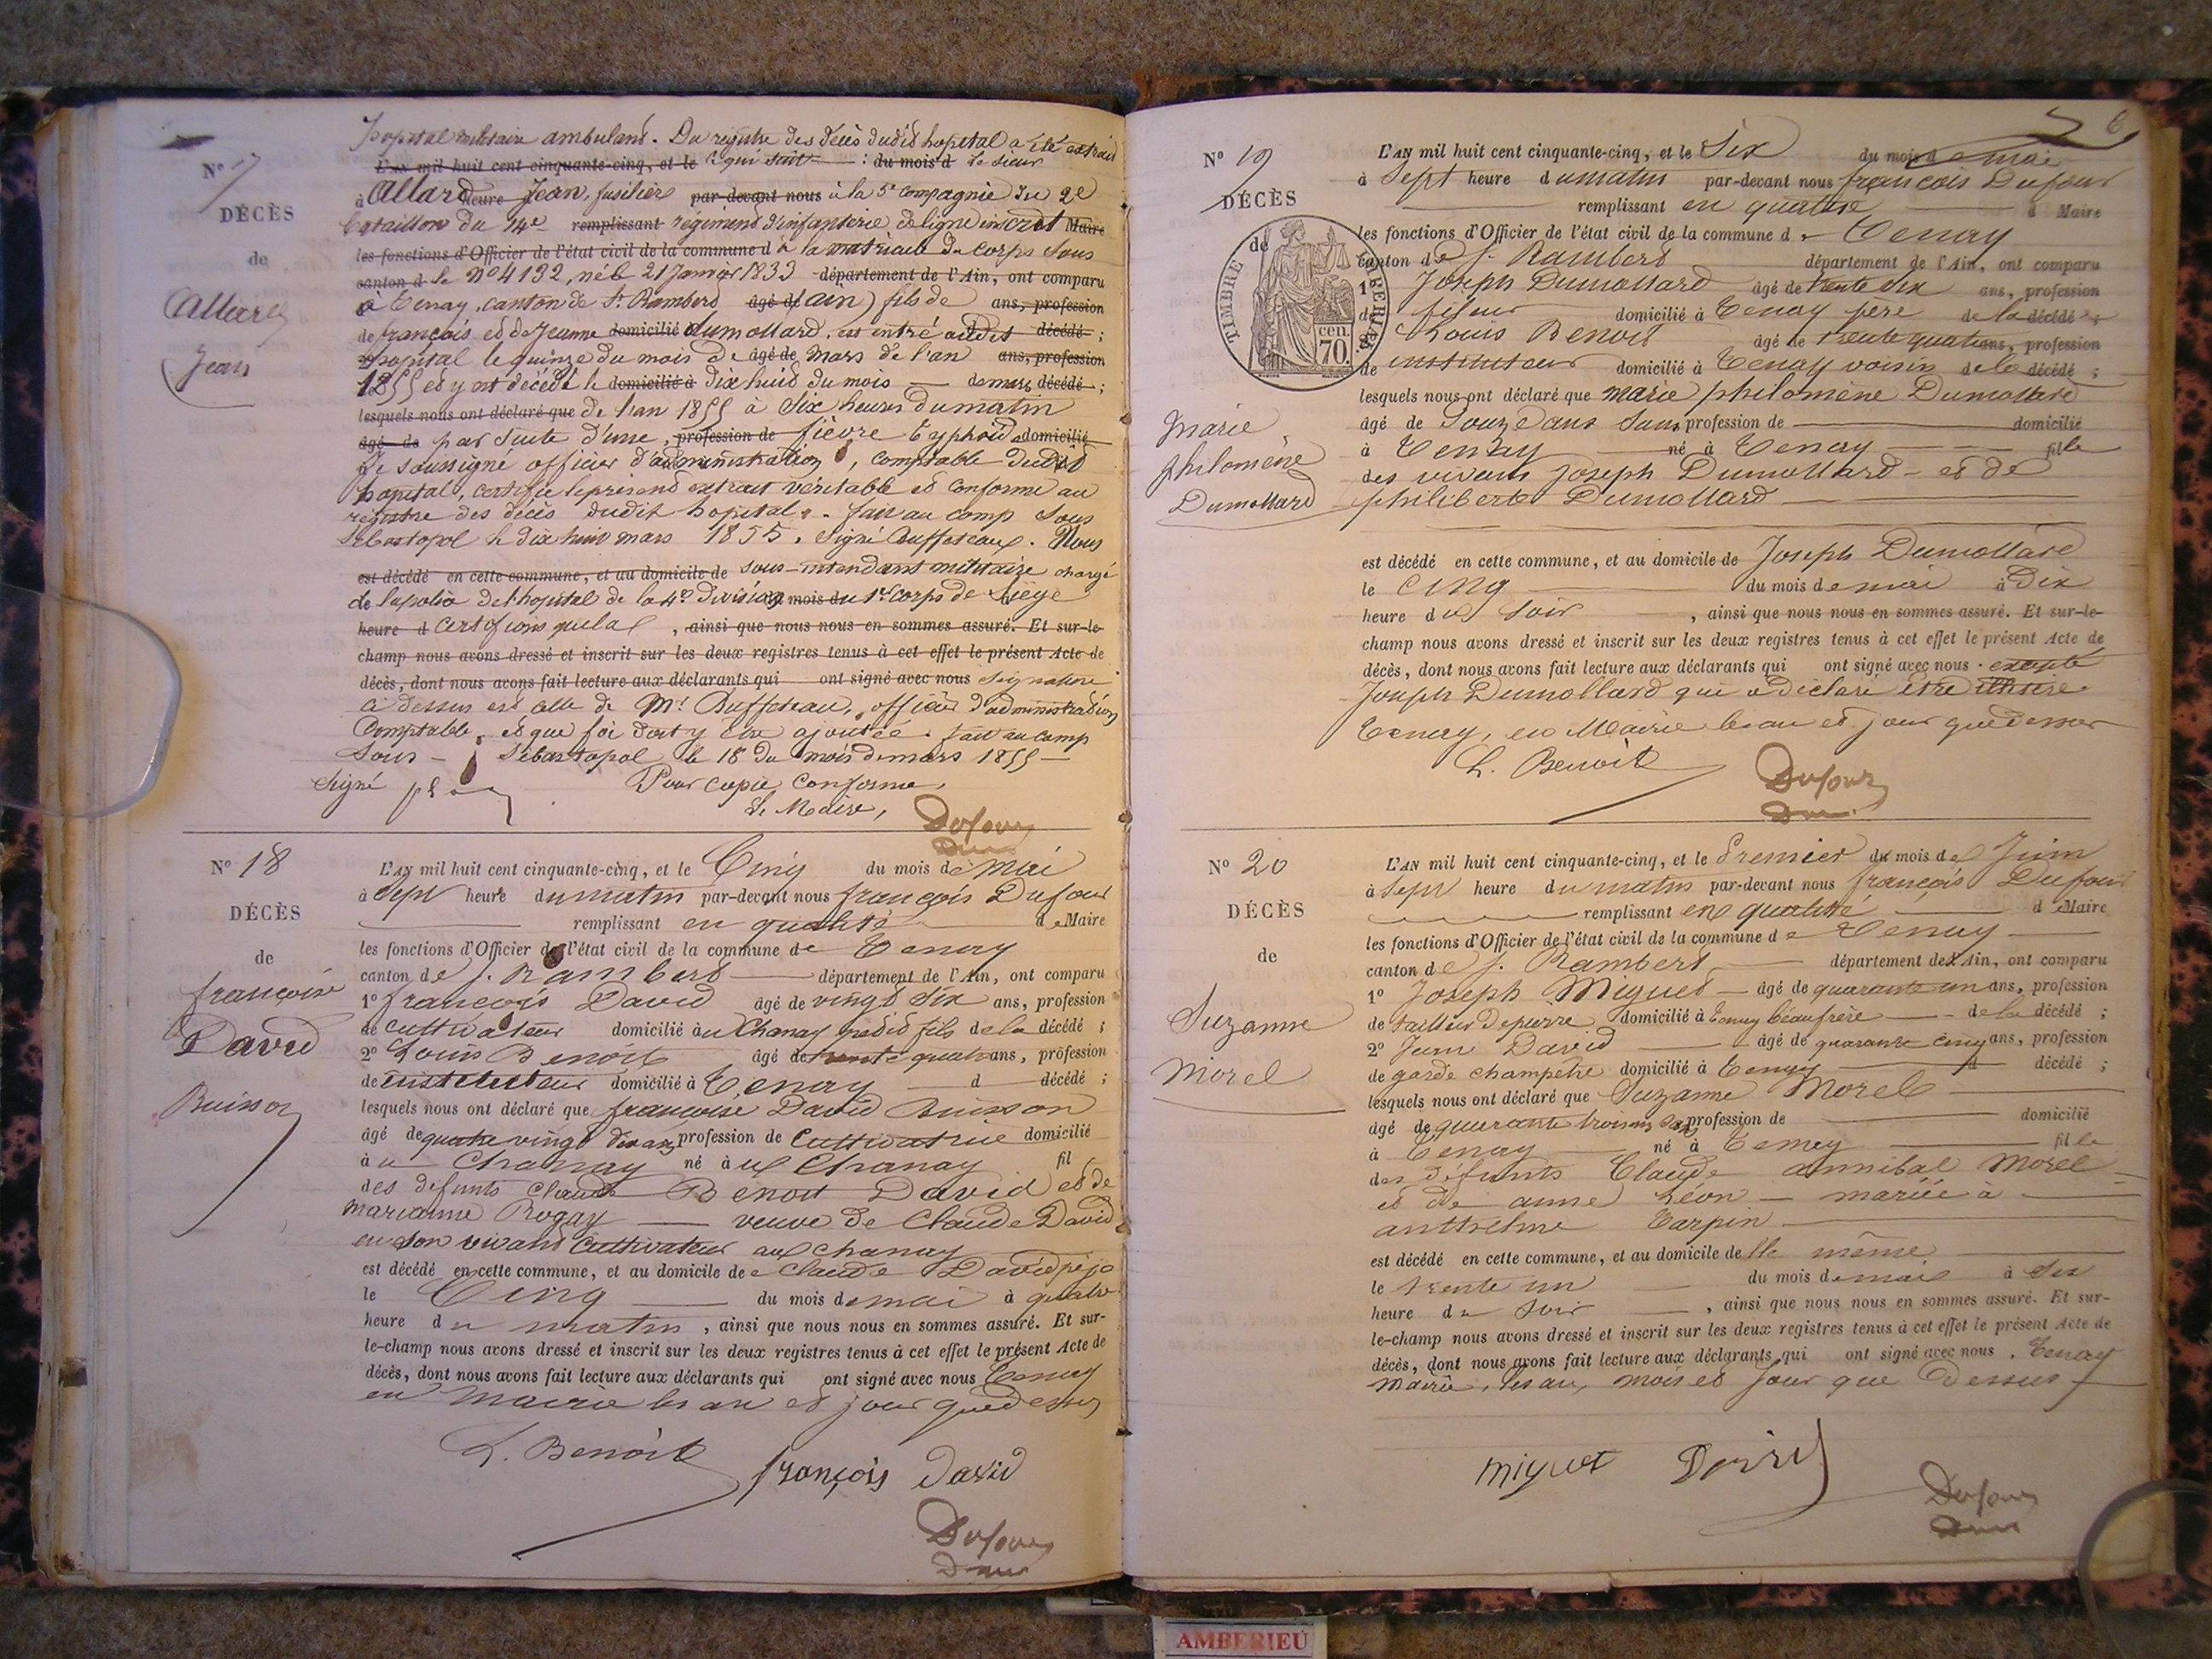 hopital militaire ambulant. Du registre des décès dudit hopital a été extrait
L'AN mil huit cent cinquante-cinq, et le ce qui suit : du mois d Le sieur
N° 17
à Allard heure Jean, fusilier par-devant nous à la 5e compagnie du 2e
DÉCÈS
bataillon du 14e remplissant régiment d'infanterie de ligne inscrit Maire
les fonctions d'Officier de l'état civil de la commune d à la matricule du corps sous
de
canton d le N° 4132, né le 21 Janvier 1833 département de l'Ain, ont comparu
à Tenay, canton de St Rambert âgé d (ain) fils de ans, profession
Allard
de françois et de Jeanne domicilié Dumollard, est entré audit décédé ;
hopital le quinze du mois de âgé de mars de l'an ans, profession
Jean
1855 et y est décédé le domicilié à dix huit du mois de mars décédé ;
lesquels nous ont déclaré que de l'an 1855 à Six heures du matin
âgé de par suite d'une profession de fièvre typhoïde domicilié
Je soussigné officier d'administration, comptable dudit
hopital, certifie le présent extrait véritable et conforme au
registre des décès dudit hopital. fait au camp sous
Sébastopol le dix huit mars 1855. Signé Buffeteau. Nous
est décédé en cette commune, et au domicile de sous-intendant militaire chargé
de la police de l'hopital de la 4e Division du mois du 1er corps de siège
heure d certifions que la , ainsi que nous nous en sommes assuré. Et sur-le-
champ nous avons dressé et inscrit sur les deux registres tenus à cet effet le présent Acte de
décès, dont nous avons fait lecture aux déclarants qui ont signé avec nous signature
ci dessus est celle de Mr Buffeteau, officier d'administration
Comptable, et que foi doit y être ajoutée. fait au camp
sous - Sébastopol le 18 du mois de mars 1855
Signé Pour copie conforme,
Le Maire,
Dufour
N° 18
L'AN mil huit cent cinquante-cinq, et le Cinq du mois de mai
à Sept heure du matin par-devant nous françois Dufour
DÉCÈS
remplissant en qualité de Maire
les fonctions d'Officier de l'état civil de la commune de Tenay
de
canton de S. Rambert département de l'Ain, ont comparu
françoise
1° françois David âgé de vingt six ans, profession
de cultivateur domicilié au Chanay petit fils de la décédé ;
David
2° Louis Benoit âgé de trente quatre ans, profession
de instituteur domicilié à Tenay d décédé ;
Buisson
lesquels nous ont déclaré que françoise David Buisson
âgé de quatre vingt dix ans profession de Cultivatrice domicilié
à u Chanay né à u Chanay fil
des défunts Claude Benoit David et de
marianne Rogay veuve de Claude David
en son vivant Cultivateur au Chanay
est décédé en cette commune, et au domicile de Claude David
le Cinq du mois de mai à quatre
heure du matin, ainsi que nous nous en sommes assuré. Et sur-
le-champ nous avons dressé et inscrit sur les deux registres tenus à cet effet le présent Acte de
décès, dont nous avons fait lecture aux déclarants qui ont signé avec nous Tenay
en mairie les an et jour que dessus
L. Benoit
françois david
Dufour
6
N° 19
L'AN mil huit cent cinquante-cinq, et le Six du mois de mai
à Sept heure du matin par-devant nous françois Dufour
DÉCÈS
remplissant en qualité d Maire
les fonctions d'Officier de l'état civil de la commune de Tenay
de
TIMBRE IMPERIAL
cen. 70.
canton de S. Rambert département de l'Ain, ont comparu
1° Joseph Dumollard âgé de trente six ans, profession
de fileur domicilié à Tenay père de la décédé ;
2° Louis Benoit âgé de trente quatre ans, profession
de instituteur domicilié à Tenay voisin de la décédé ;
lesquels nous ont déclaré que marie philomène Dumollard
Marie
âgé de Douze ans sans profession de domicilié
philomène
à Tenay né à Tenay fille
des vivants Joseph Dumollard et de
Dumollard
philiberte Dumollard
est décédé en cette commune, et au domicile de Joseph Dumollard
le cinq du mois de mai à Dix
heure du soir , ainsi que nous nous en sommes assuré. Et sur-le-
champ nous avons dressé et inscrit sur les deux registres tenus à cet effet le présent Acte de
décès, dont nous avons fait lecture aux déclarants qui ont signé avec nous. excepté
Joseph Dumollard qui a déclaré être illitéré
Tenay, en Mairie les an et jour que dessus
L. Benoit
Dufour
N° 20
L'AN mil huit cent cinquante-cinq, et le Premier du mois de Juin
à Sept heure du matin par-devant nous françois Dufour
DÉCÈS
remplissant en qualité d Maire
les fonctions d'Officier de l'état civil de la commune de Tenay
de
canton de S. Rambert département de l'Ain, ont comparu
1° Joseph Miguet âgé de quarante un ans, profession
Suzanne
de tailleur de pierre domicilié à Tenay beaufrère de la décédé ;
2° Jean David âgé de quarante cinq ans, profession
Morel
de garde champêtre domicilié à Tenay d décédé ;
lesquels nous ont déclaré que Suzanne Morel
âgé de quarante trois ans profession de domicilié
à Tenay né à Tenay fille
des défunts Claude annibal Morel
et de anne Léon - mariée à
anthelme Tarpin
est décédé en cette commune, et au domicile d elle même
le trente un du mois de mai à Six
heure du soir , ainsi que nous nous en sommes assuré. Et sur-
le-champ nous avons dressé et inscrit sur les deux registres tenus à cet effet le présent Acte de
décès, dont nous avons fait lecture aux déclarants qui ont signé avec nous. Tenay
mairie, les an, mois et jour que dessus
miguet David
Dufour
AMBERIEU